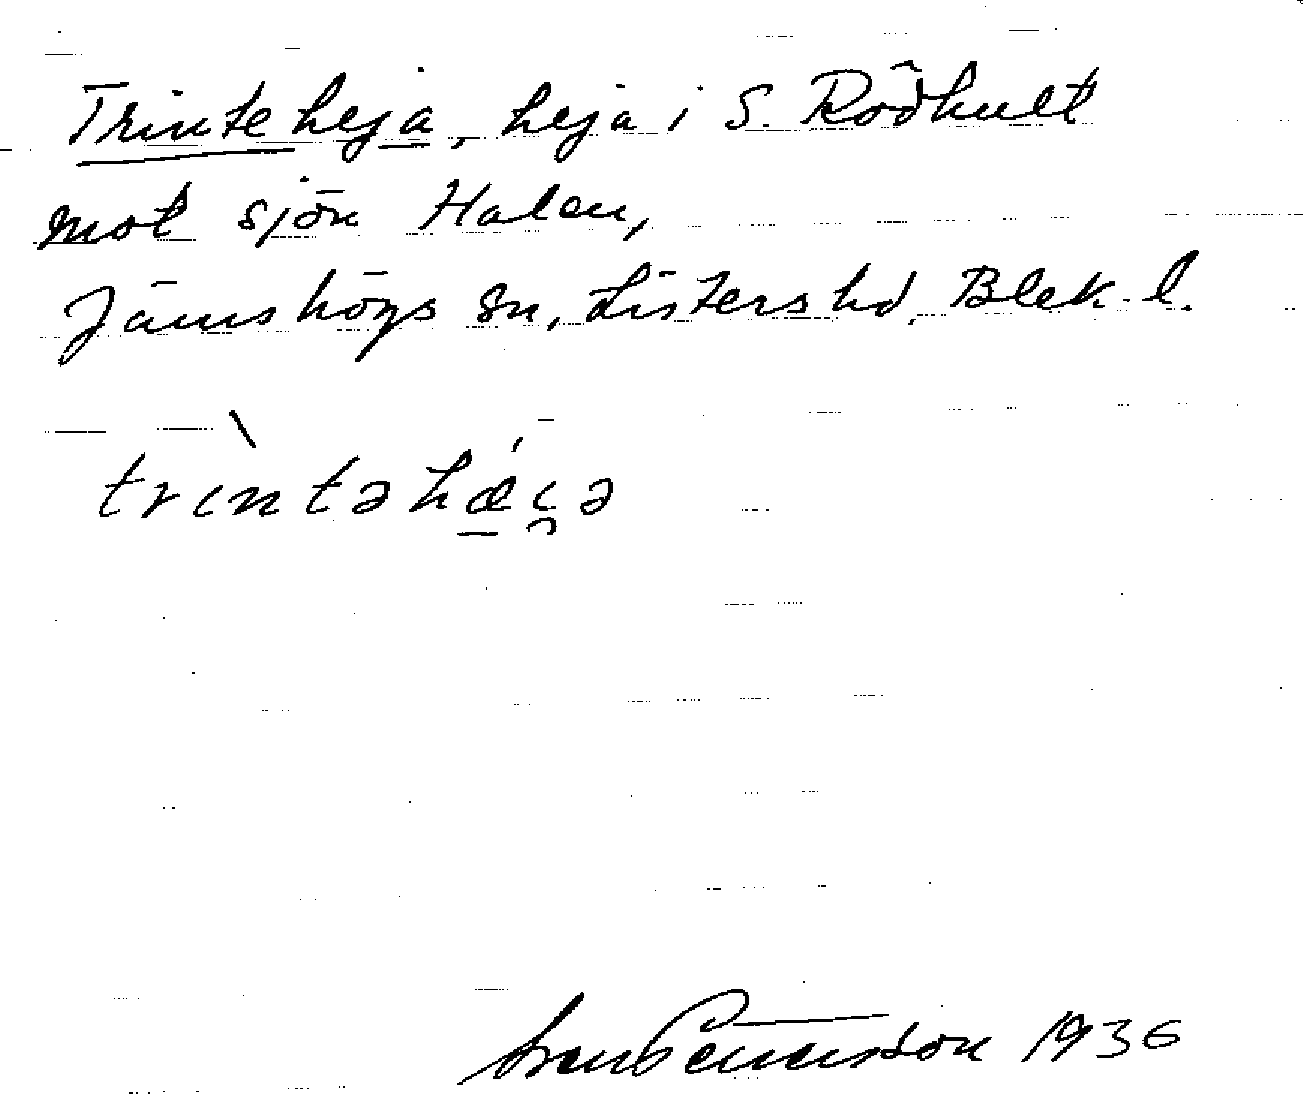 Trinteheja, heja i S. Rödhult
mot sjön Halen,
Jämshögs sn, Listers hd, Blek. l.
trìntəhǽi̯ə
1936